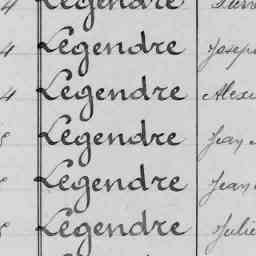 Legendre
4 Legendre Joseph
4 Legendre
Legendre Jean
Legendre Jean
Legendre Julie